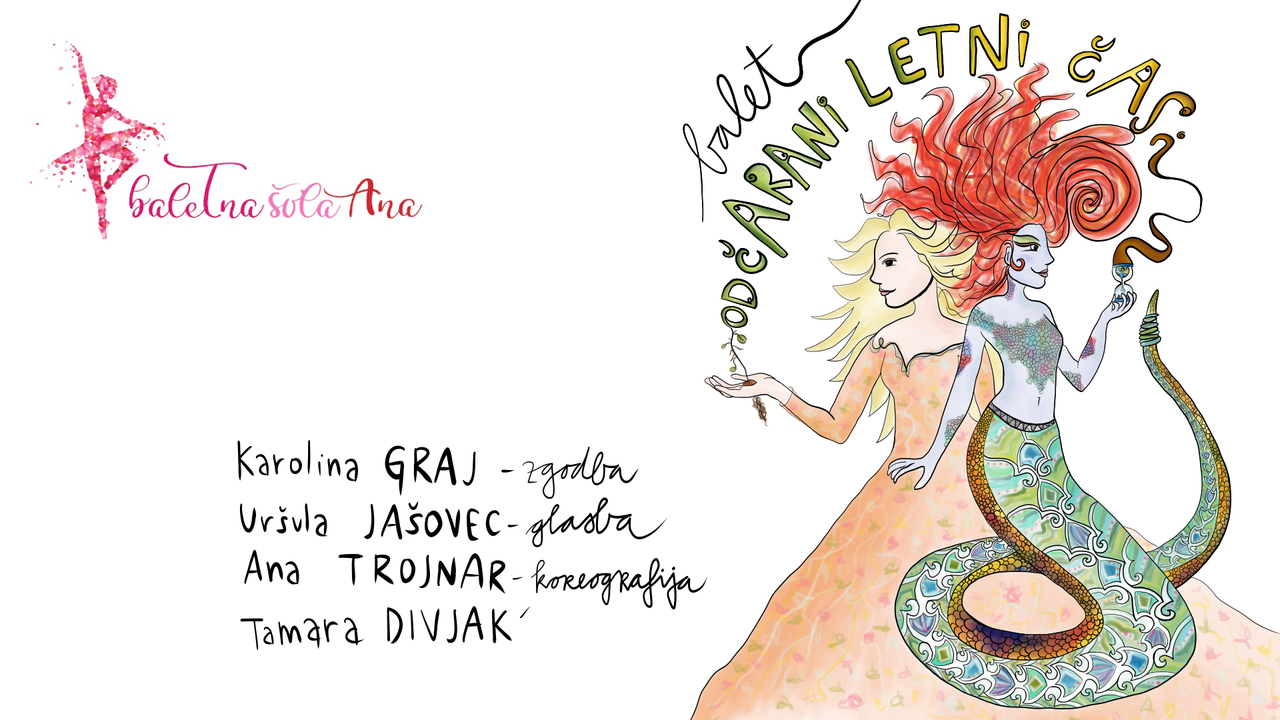 baletna šola Ana
balet
ODČARANI LETNI ČASi
Karolina GRAJ - zgodba
Uršula JAŠOVEC - glasba
Ana TROJNAR - koreografija
Tamara DIVJAK